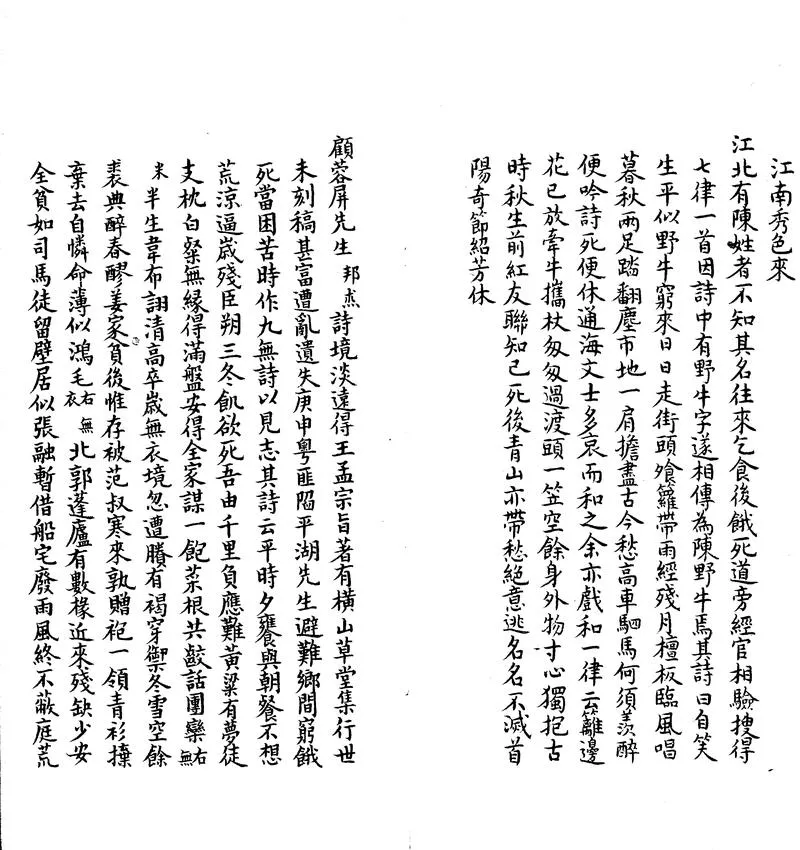 江南秀色來
江北有陳姓者不知其名往來乞食後餓死道旁經官相驗搜得
七律一首因詩中有野牛字遂相傳為陳野牛焉其詩曰自笑
生平似野牛窮來日日走街頭飱籮帶雨經殘月檀板臨風唱
暮秋兩足踏翻塵市地一肩擔盡古今愁高車駟馬何須羨醉
便吟詩死便休通海文士多哀而和之余亦戲和一律云籬邊
花已放牽牛攜杖匆匆過渡頭一笠空餘身外物寸心獨抱古
時秋生前紅友聯知己死後青山亦帶愁絕意逃名名不滅首
陽奇節紹芳休
顧蓉屏先生邦杰詩境淡遠得王孟宗旨著有橫山草堂集行世
未刻稿甚富遭亂遺失庚申粵匪陷平湖先生避難鄉間窮餓
死當困苦時作九無詩以見志其詩云平時夕饔與朝餐不想
荒涼逼歲殘臣朔三冬飢欲死吾由千里負應難黃粱有夢徒
支枕白粲無緣得滿盤安得全家謀一飽菜根共齩話團欒右無
米半生韋布詡清高卒歲無衣境忽遭賸有褐穿禦冬雪空餘
裘典醉春醪姜家貧後惟存被范叔寒來孰贈袍一領青衫擈
棄去自憐命薄似鴻毛右無衣北郭蓬廬有數椽近來殘缺少安
全貧如司馬徒留壁居似張融暫借船宅廢雨風終不蔽庭荒